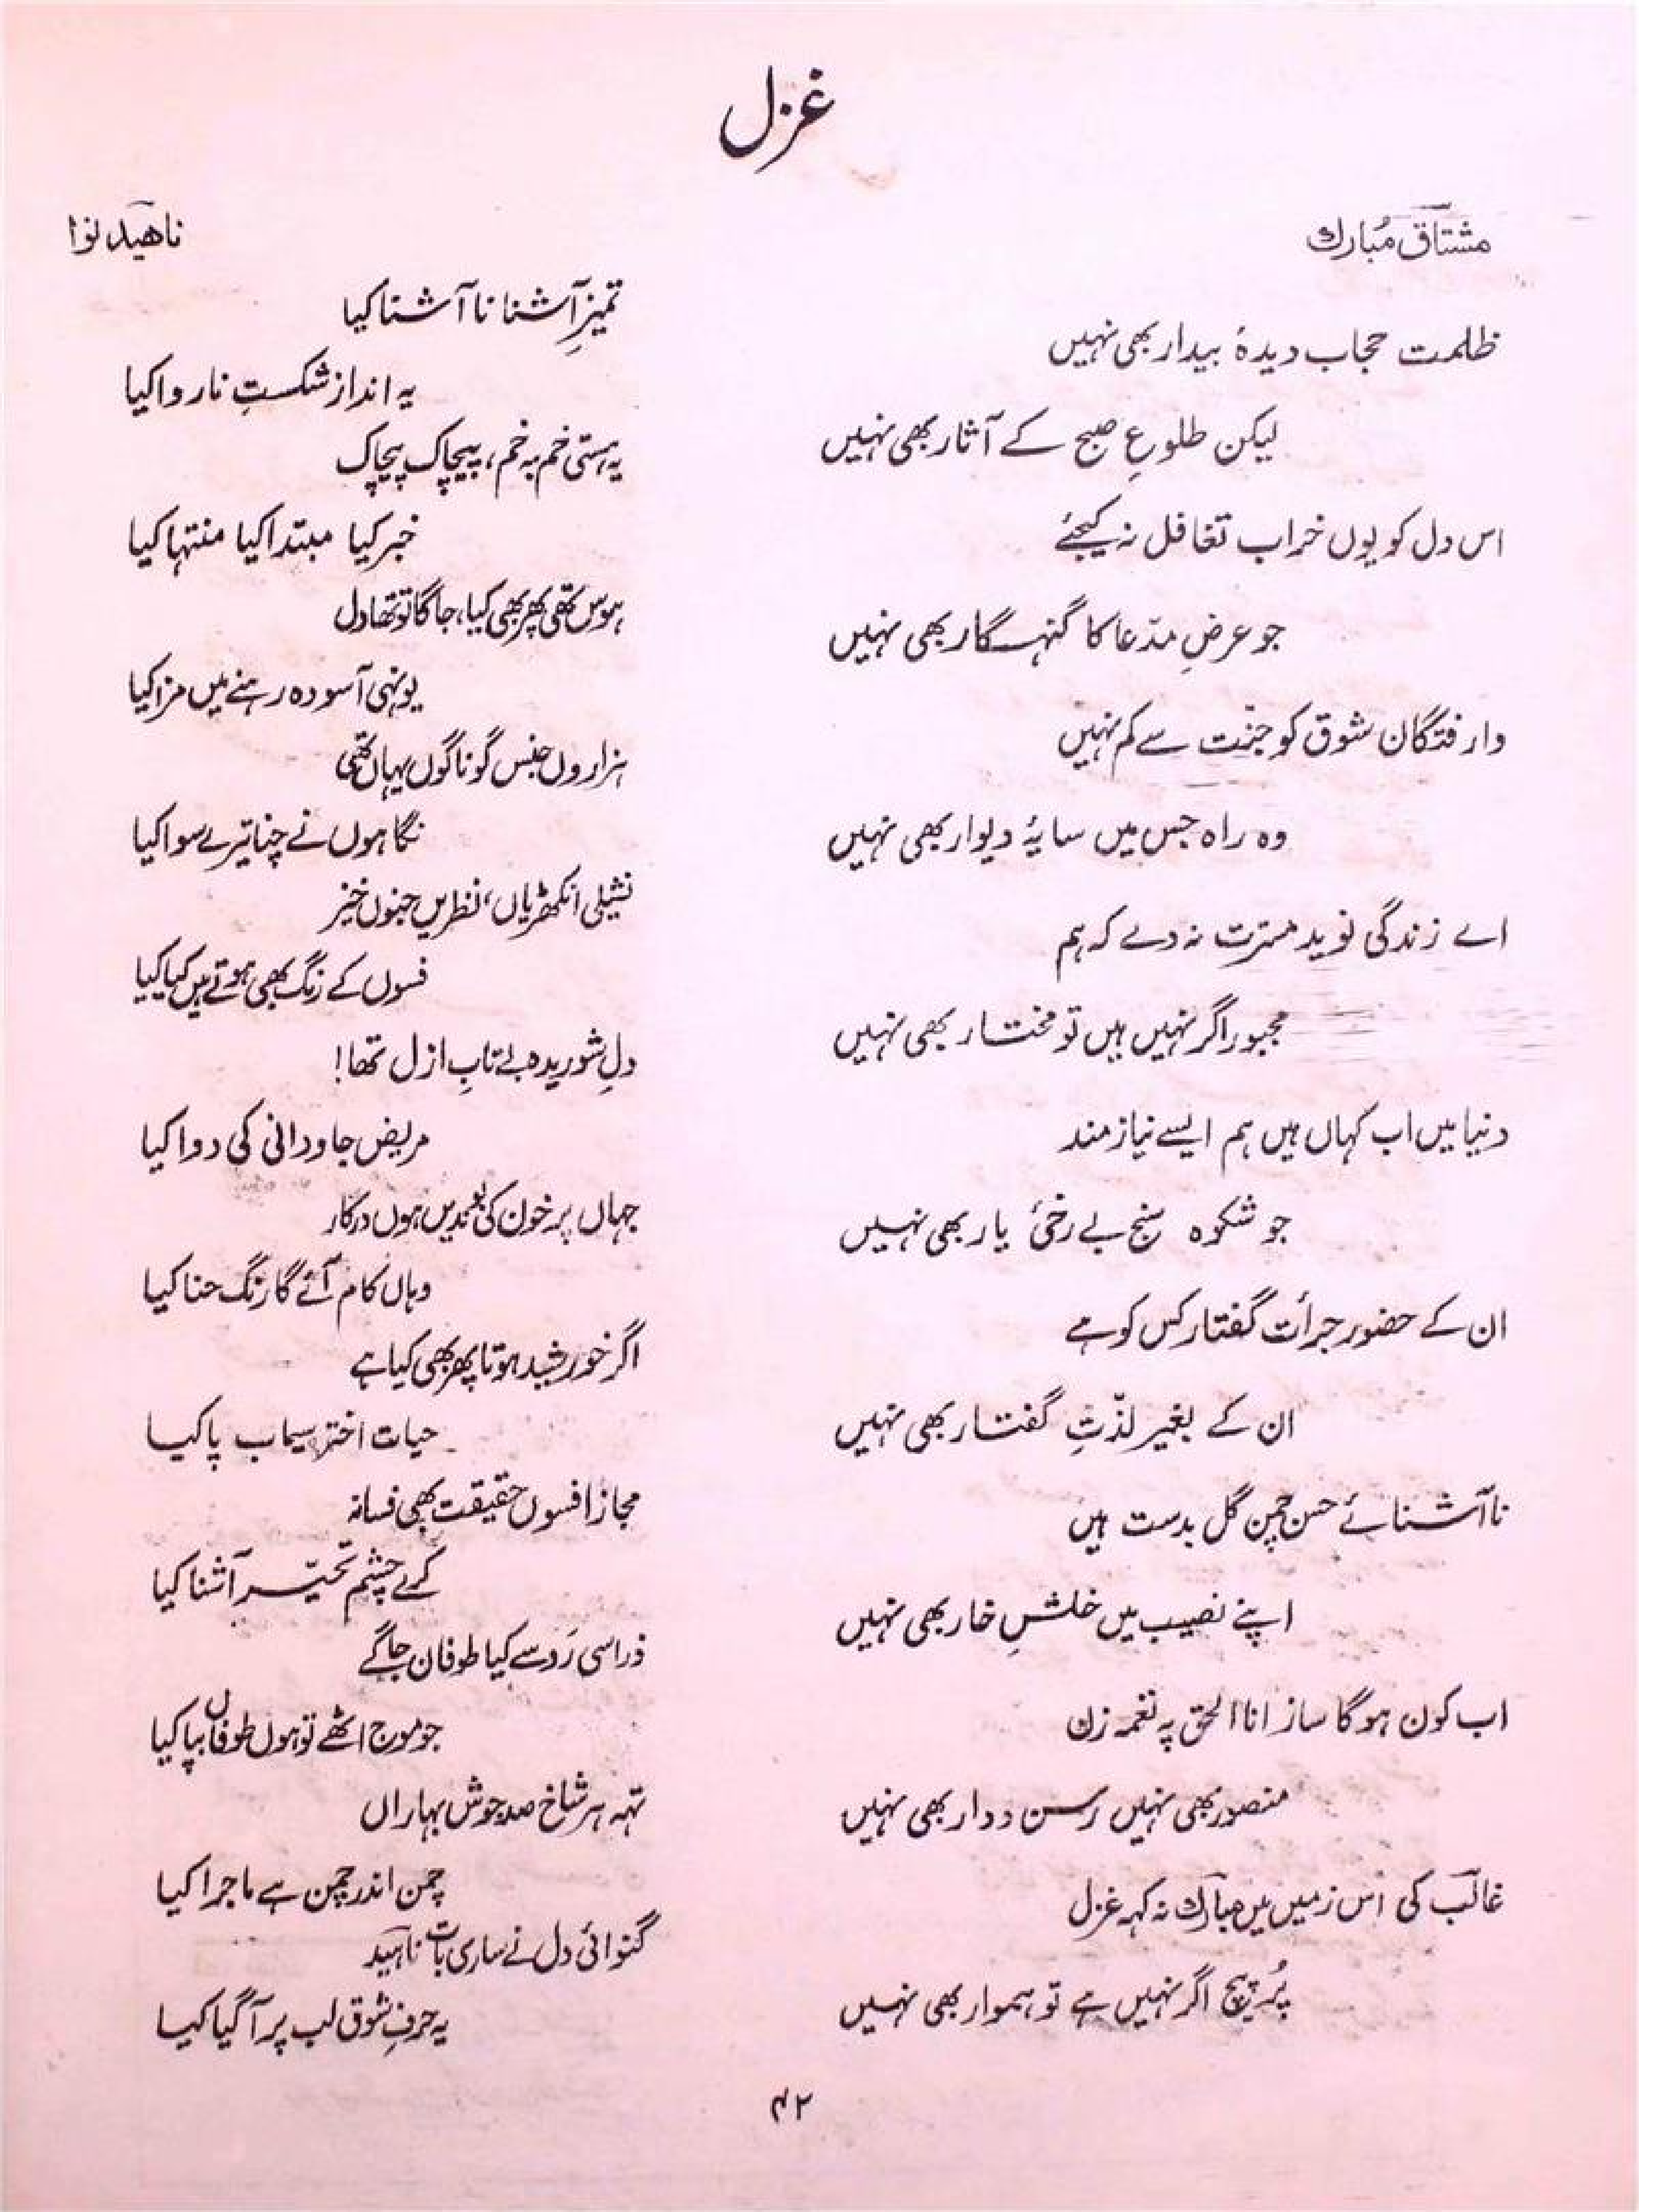 غزل
مشتاق مُبارك
ظلمت حجاب دیدۂ بیدار بھی نہیں
لیکن طلوعِ صبح کے آثار بھی نہیں
اس دل کو یوں خراب تغافل نہ کیجئے
جو عرضِ مدّعا کا گنہگار بھی نہیں
وارفتگان شوق کو جنّت سے کم نہیں
وہ راہ جس میں سایۂ دیوار بھی نہیں
اے زندگی نوید مسرّت نہ دے کہ ہم
مجبور اگر نہیں ہیں تو مختار بھی نہیں
دنیا میں اب کہاں ہیں ہم ایسے نیاز مند
جو شکوہ سنج بے رخیٔ یار بھی نہیں
ان کے حضور جرأت گفتار کس کو ہے
ان کے بغیر لذّتِ گفتار بھی نہیں
ناآشنائے حسن چمن گل بدست ہیں
اپنے نصیب میں خلشِ خار بھی نہیں
اب کون ہوگا ساز انا الحق پہ نغمہ زن
منصور بھی نہیں رسن و دار بھی نہیں
غالبؔ کی اس زمیں میں مبارکؔ نہ کہہ غزل
پُر پیچ اگر نہیں ہے تو ہموار بھی نہیں
ناھید نوا
تمیزِ آشنا نا آشنا کیا
یہ انداز شکستِ ناروا کیا
یہ ہستی خم بہ خم، پیچاک پیچاک
خبر کیا مبتدا کیا منتہا کیا
ہوس تھی پھر بھی کیا، جاگا تو تھا دل
یونہی آسودہ رہنے میں مزا کیا
ہزاروں جنس گوناگوں یہاں تھی
نگاہوں نے چنا تیرے سوا کیا
نشیلی انکھڑیاں، نظریں جنوں خیز
فسوں کے رنگ بھی ہوتے ہیں کیا کیا
دلِ شوریدہ بے تابِ ازل تھا!
مریض جاودانی کی دوا کیا
جہاں پر خون کی بوندیں ہوں درکار
وہاں کام آئے گا رنگ حنا کیا
اگر خورشید ہوتا پھر بھی کیا ہے
حیات اختر سیماب پا کیا
مجاز افسوں حقیقت بھی فسانہ
کرے چشم تحیّر آشنا کیا
ذرا سی رَو سے کیا طوفان جاگے
جو موج اٹھے تو ہوں طوفاں بپا کیا
تہہ ہر شاخ صد جوش بہاراں
چمن اندر چمن ہے ماجرا کیا
گنوائی دل نے ساری بات ناہیدؔ
یہ حرفِ شوق لب پر آ گیا کیا
۴۲